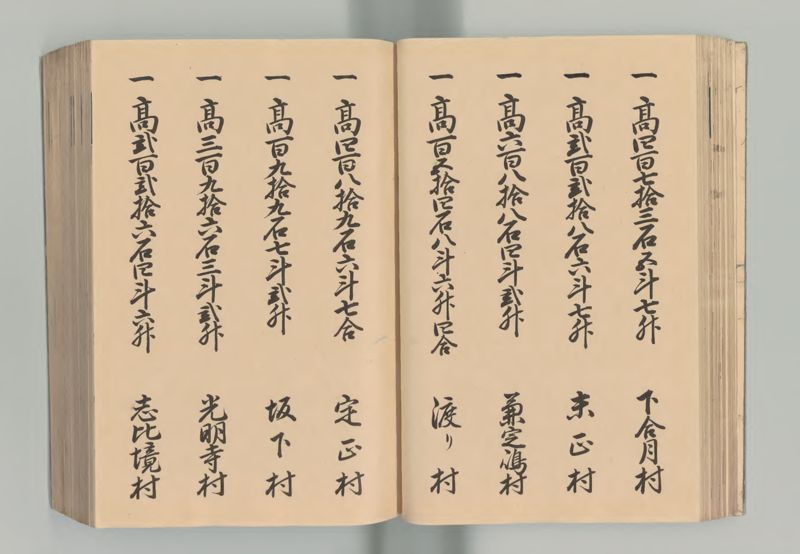 一 高四百七拾三石五斗七升 下合月村
一 高弐百弐拾八石六斗七升 末正村
一 高六百八拾八石四斗弐升 兼定嶋村
一 高百五拾四石八斗六升四合 渡り村
一 高四百八拾九石六斗七合 定正村
一 高百九拾九石七斗弐升 坂下村
一 高三百九拾六石三斗弐升 光明寺村
一 高弐百弐拾六石四斗六升 志比境村